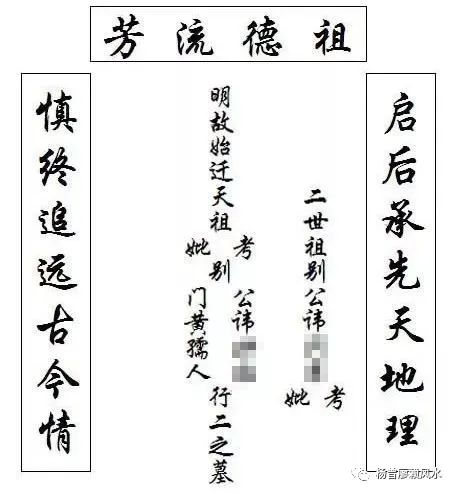 祖德流芳
启后承先天地理
二世祖别公讳
考妣
明故始迁天祖
考妣
别
公讳
门黄孺人
行二之墓
慎终追远古今情
杨曾廖赖风水